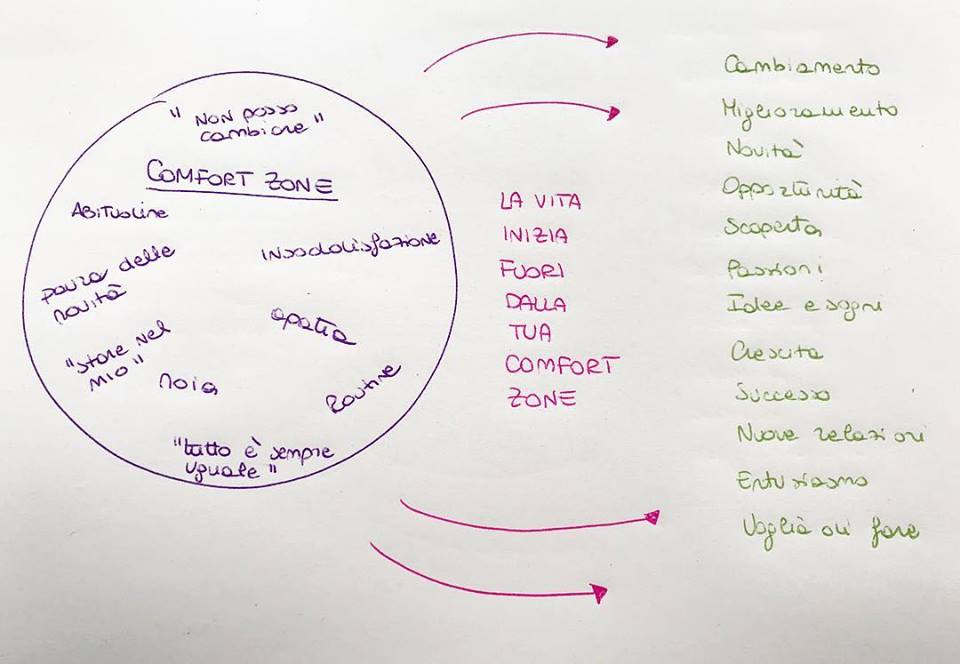 "NON posso
cambiare"
COMFORT ZONE
ABITUDINE
insoddisfazione
paura delle
novità
apatia
"stare nel
mio"
noia
Routine
"tutto è sempre
uguale"
LA VITA
INIZIA
FUORI
DALLA
TUA
COMFORT
ZONE
Cambiamento
Miglioramento
Novità
Opportunità
Scoperta
Passioni
Idee e sogni
Crescita
Successo
Nuove relazioni
Entusiasmo
Voglia di fare